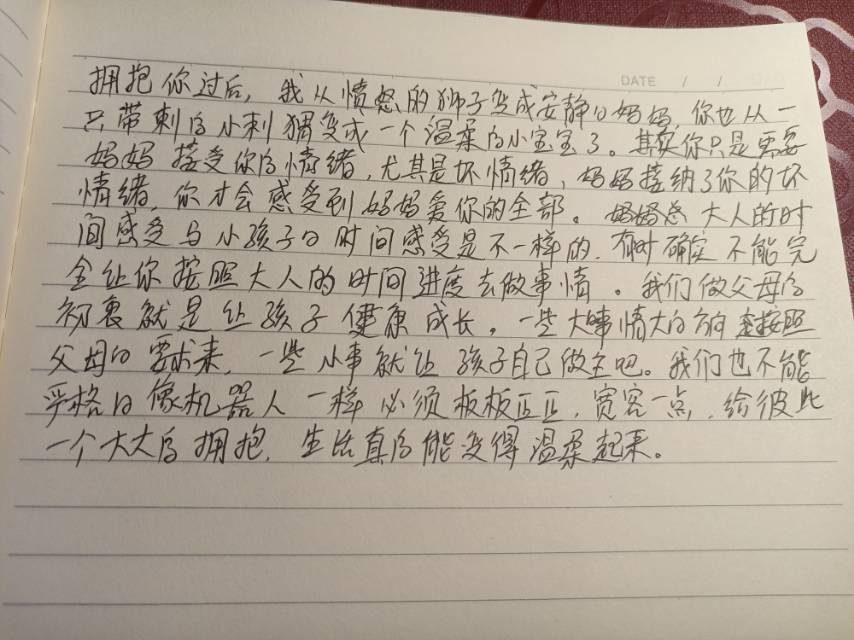 DATE / /
拥抱你过后，我从愤怒的狮子变成安静的妈妈，你也从一
只带刺的小刺猬变成一个温柔的小宝宝了。其实你只是需要
妈妈接受你的情绪，尤其是坏情绪，妈妈接纳了你的坏
情绪，你才会感受到妈妈爱你的全部。妈妈忘大人的时
间感受与小孩子的时间感受是不一样的，有时确定不能完
全让你按照大人的时间进度去做事情。我们做父母的
初衷就是让孩子健康成长。一些大事情大的方向按照
父母的要求来，一些小事就让孩子自己做主吧。我们也不能
严格的像机器人一样必须板板正正，宽容一点，给彼此
一个大大的拥抱，生活真的能变得温柔起来。